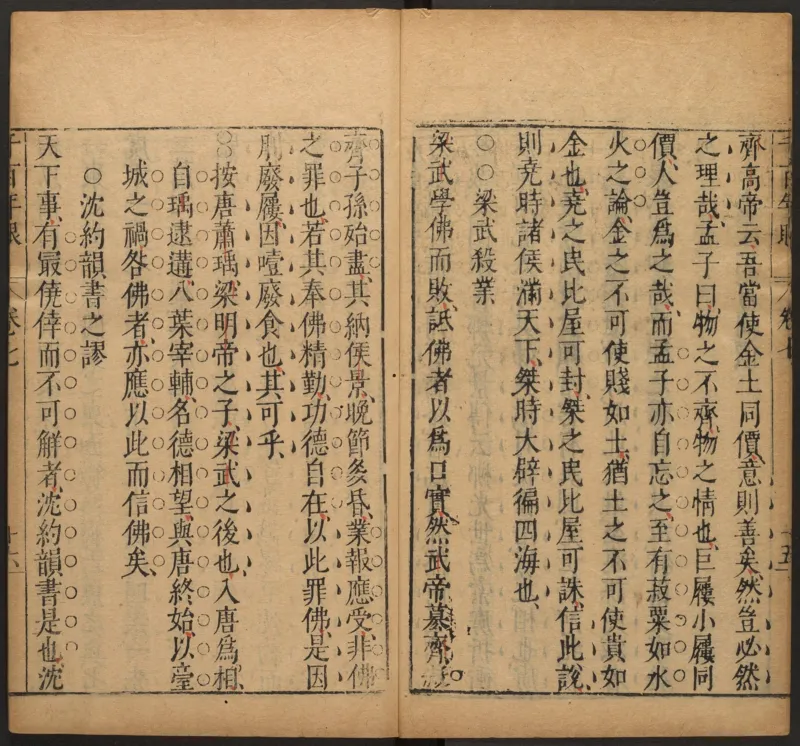 齊高帝云吾當使金土同價意則善矣然豈必然
之理哉孟子曰物之不齊物之情也巨屨小屨同
價人豈爲之哉而孟子亦自忘之至有菽粟如水
火之論金之不可使賤如土猶土之不可使貴如
金也堯之民比屋可封桀之民比屋可誅信此說
則堯時諸侯滿天下桀時大辟徧四海也
○○梁武殺業
梁武學佛而敗詆佛者以爲口實然武帝篡齊
千百年眼 卷七 十五
齊子孫始盡其納侯景晚節多昏業報應受非佛
之罪也若其奉佛精勤功德自在以此罪佛是因
刖廢屨因噎廢食也其可乎
○按唐蕭瑀梁明帝之子梁武之後也入唐爲相
自瑀逮遘八葉宰輔名德相望與唐終始以臺
城之禍咎佛者亦應以此而信佛矣
○沈約韻書之謬
天下事有最僥倖而不可解者沈約韻書是也沈
千百年眼 卷七 十六